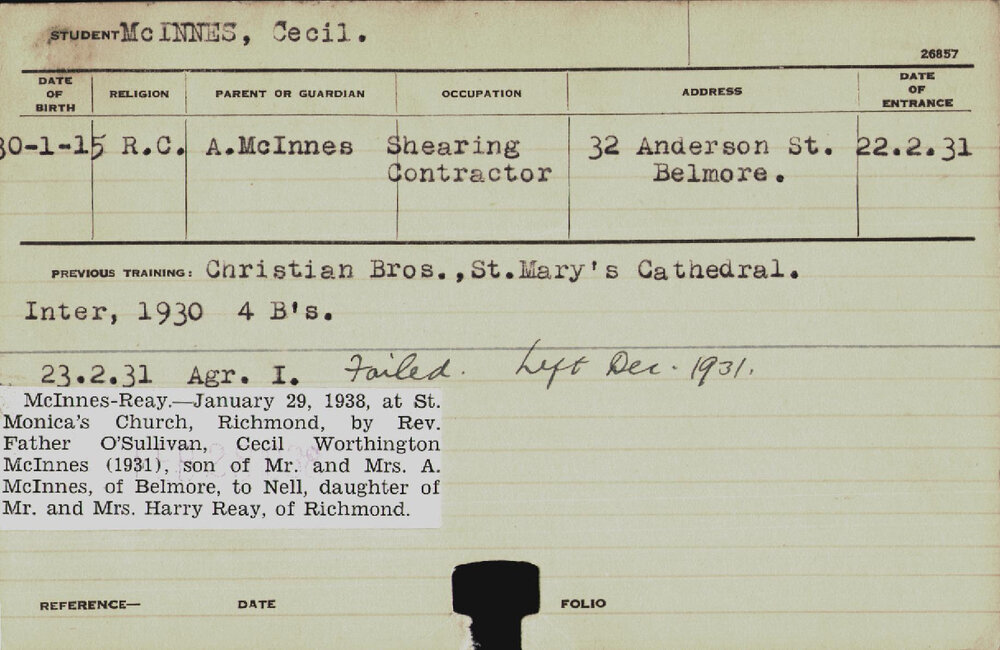 STUDENT McINNES, Cecil.
26857
DATE OF BIRTH RELIGION PARENT OR GUARDIAN OCCUPATION ADDRESS DATE OF ENTRANCE
30-1-15 R.C. A.McInnes Shearing 32 Anderson St. 22.2.31
Contractor Belmore.
PREVIOUS TRAINING: Christian Bros.,St.Mary's Cathedral.
Inter, 1930 4 B's.
23.2.31 Agr. I. Failed. Left Dec. 1931.
McInnes-Reay.—January 29, 1938, at St.
Monica's Church, Richmond, by Rev.
Father O'Sullivan, Cecil Worthington
McInnes (1931), son of Mr. and Mrs. A.
McInnes, of Belmore, to Nell, daughter of
Mr. and Mrs. Harry Reay, of Richmond.
REFERENCE— DATE FOLIO